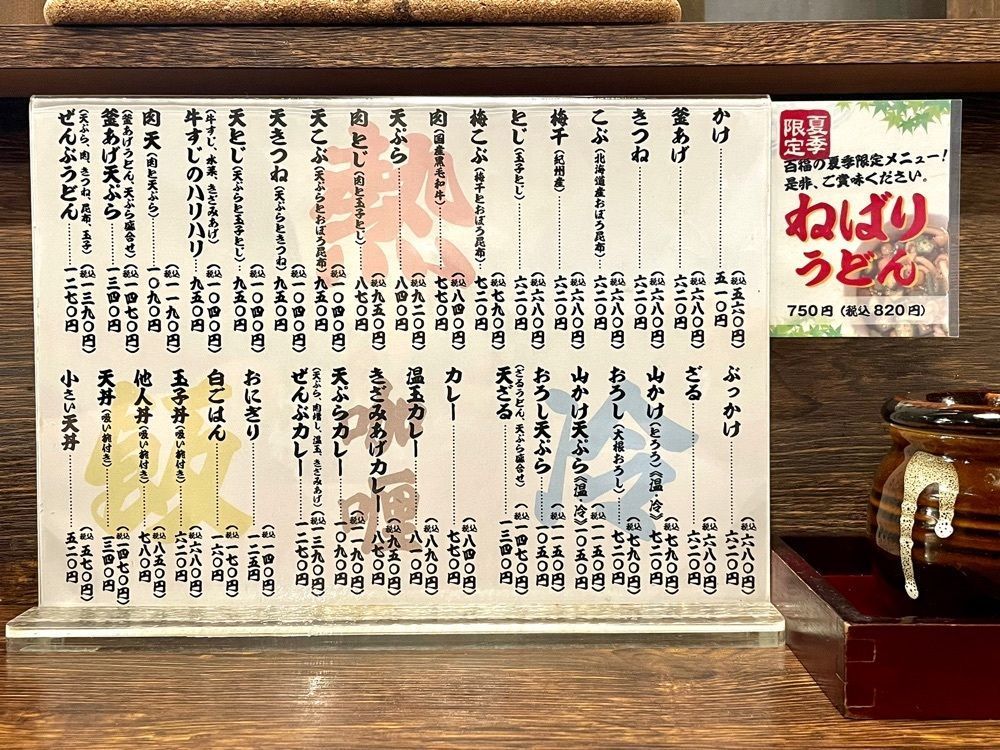 かけ 五一〇円 (税込五六〇円)
釜あげ 六二〇円 (税込六八〇円)
きつね 六二〇円 (税込六八〇円)
こぶ(北海道産おぼろ昆布) 六二〇円 (税込六八〇円)
梅干(紀州産) 六二〇円 (税込六八〇円)
とじ(玉子とじ) 六二〇円 (税込六八〇円)
梅こぶ(梅干とおぼろ昆布) 七二〇円 (税込七九〇円)
肉(国産黒毛和牛) 七七〇円 (税込八四〇円)
天ぷら 八四〇円 (税込九二〇円)
肉とじ(肉と玉子とじ) 八七〇円 (税込九五〇円)
天こぶ(天ぷらとおぼろ昆布) 九五〇円 (税込一〇四〇円)
天きつね(天ぷらときつね) 九五〇円 (税込一〇四〇円)
天とじ(天ぷらと玉子とじ) 九五〇円 (税込一〇四〇円)
牛すじのハリハリ 九五〇円
(牛すじ、水菜、きざみあげ) (税込一〇四〇円)
肉天(肉と天ぷら) 一〇九〇円 (税込一一九〇円)
釜あげ天ぷら 一三四〇円
(釜あげうどん、天ぷら盛合せ) (税込一四七〇円)
ぜんぶうどん 一二七〇円
(天ぷら、肉、きつね、昆布、玉子) (税込一三九〇円)
熱
ぶっかけ 六二〇円 (税込六八〇円)
ざる 六二〇円 (税込六八〇円)
山かけ(とろろ)《温・冷》 七二〇円 (税込七九〇円)
おろし(大根おろし) 七二〇円 (税込七九〇円)
山かけ天ぷら《温・冷》 一〇五〇円 (税込一一五〇円)
おろし天ぷら 一〇五〇円 (税込一一五〇円)
天ざる 一三四〇円
(ざるうどん、天ぷら盛合せ) (税込一四七〇円)
冷
カレー 七七〇円 (税込八四〇円)
温玉カレー 八一〇円 (税込八九〇円)
きざみあげカレー 八七〇円 (税込九五〇円)
天ぷらカレー 一〇九〇円 (税込一一九〇円)
ぜんぶカレー 一二七〇円
(天ぷら、肉増し、温玉、きざみあげ) (税込一三九〇円)
咖喱
おにぎり 一二五円 (税込一四〇円)
白ごはん 一六〇円 (税込一七〇円)
玉子丼(吸い椀付き) 六二〇円 (税込六八〇円)
他人丼(吸い椀付き) 七八〇円 (税込八五〇円)
天丼(吸い椀付き) 一三四〇円 (税込一四七〇円)
小さい天丼 五二〇円 (税込五七〇円)
飯
夏季
限定
百福の夏季限定メニュー!
是非、ご賞味ください。
ねばり
うどん
750円(税込820円)